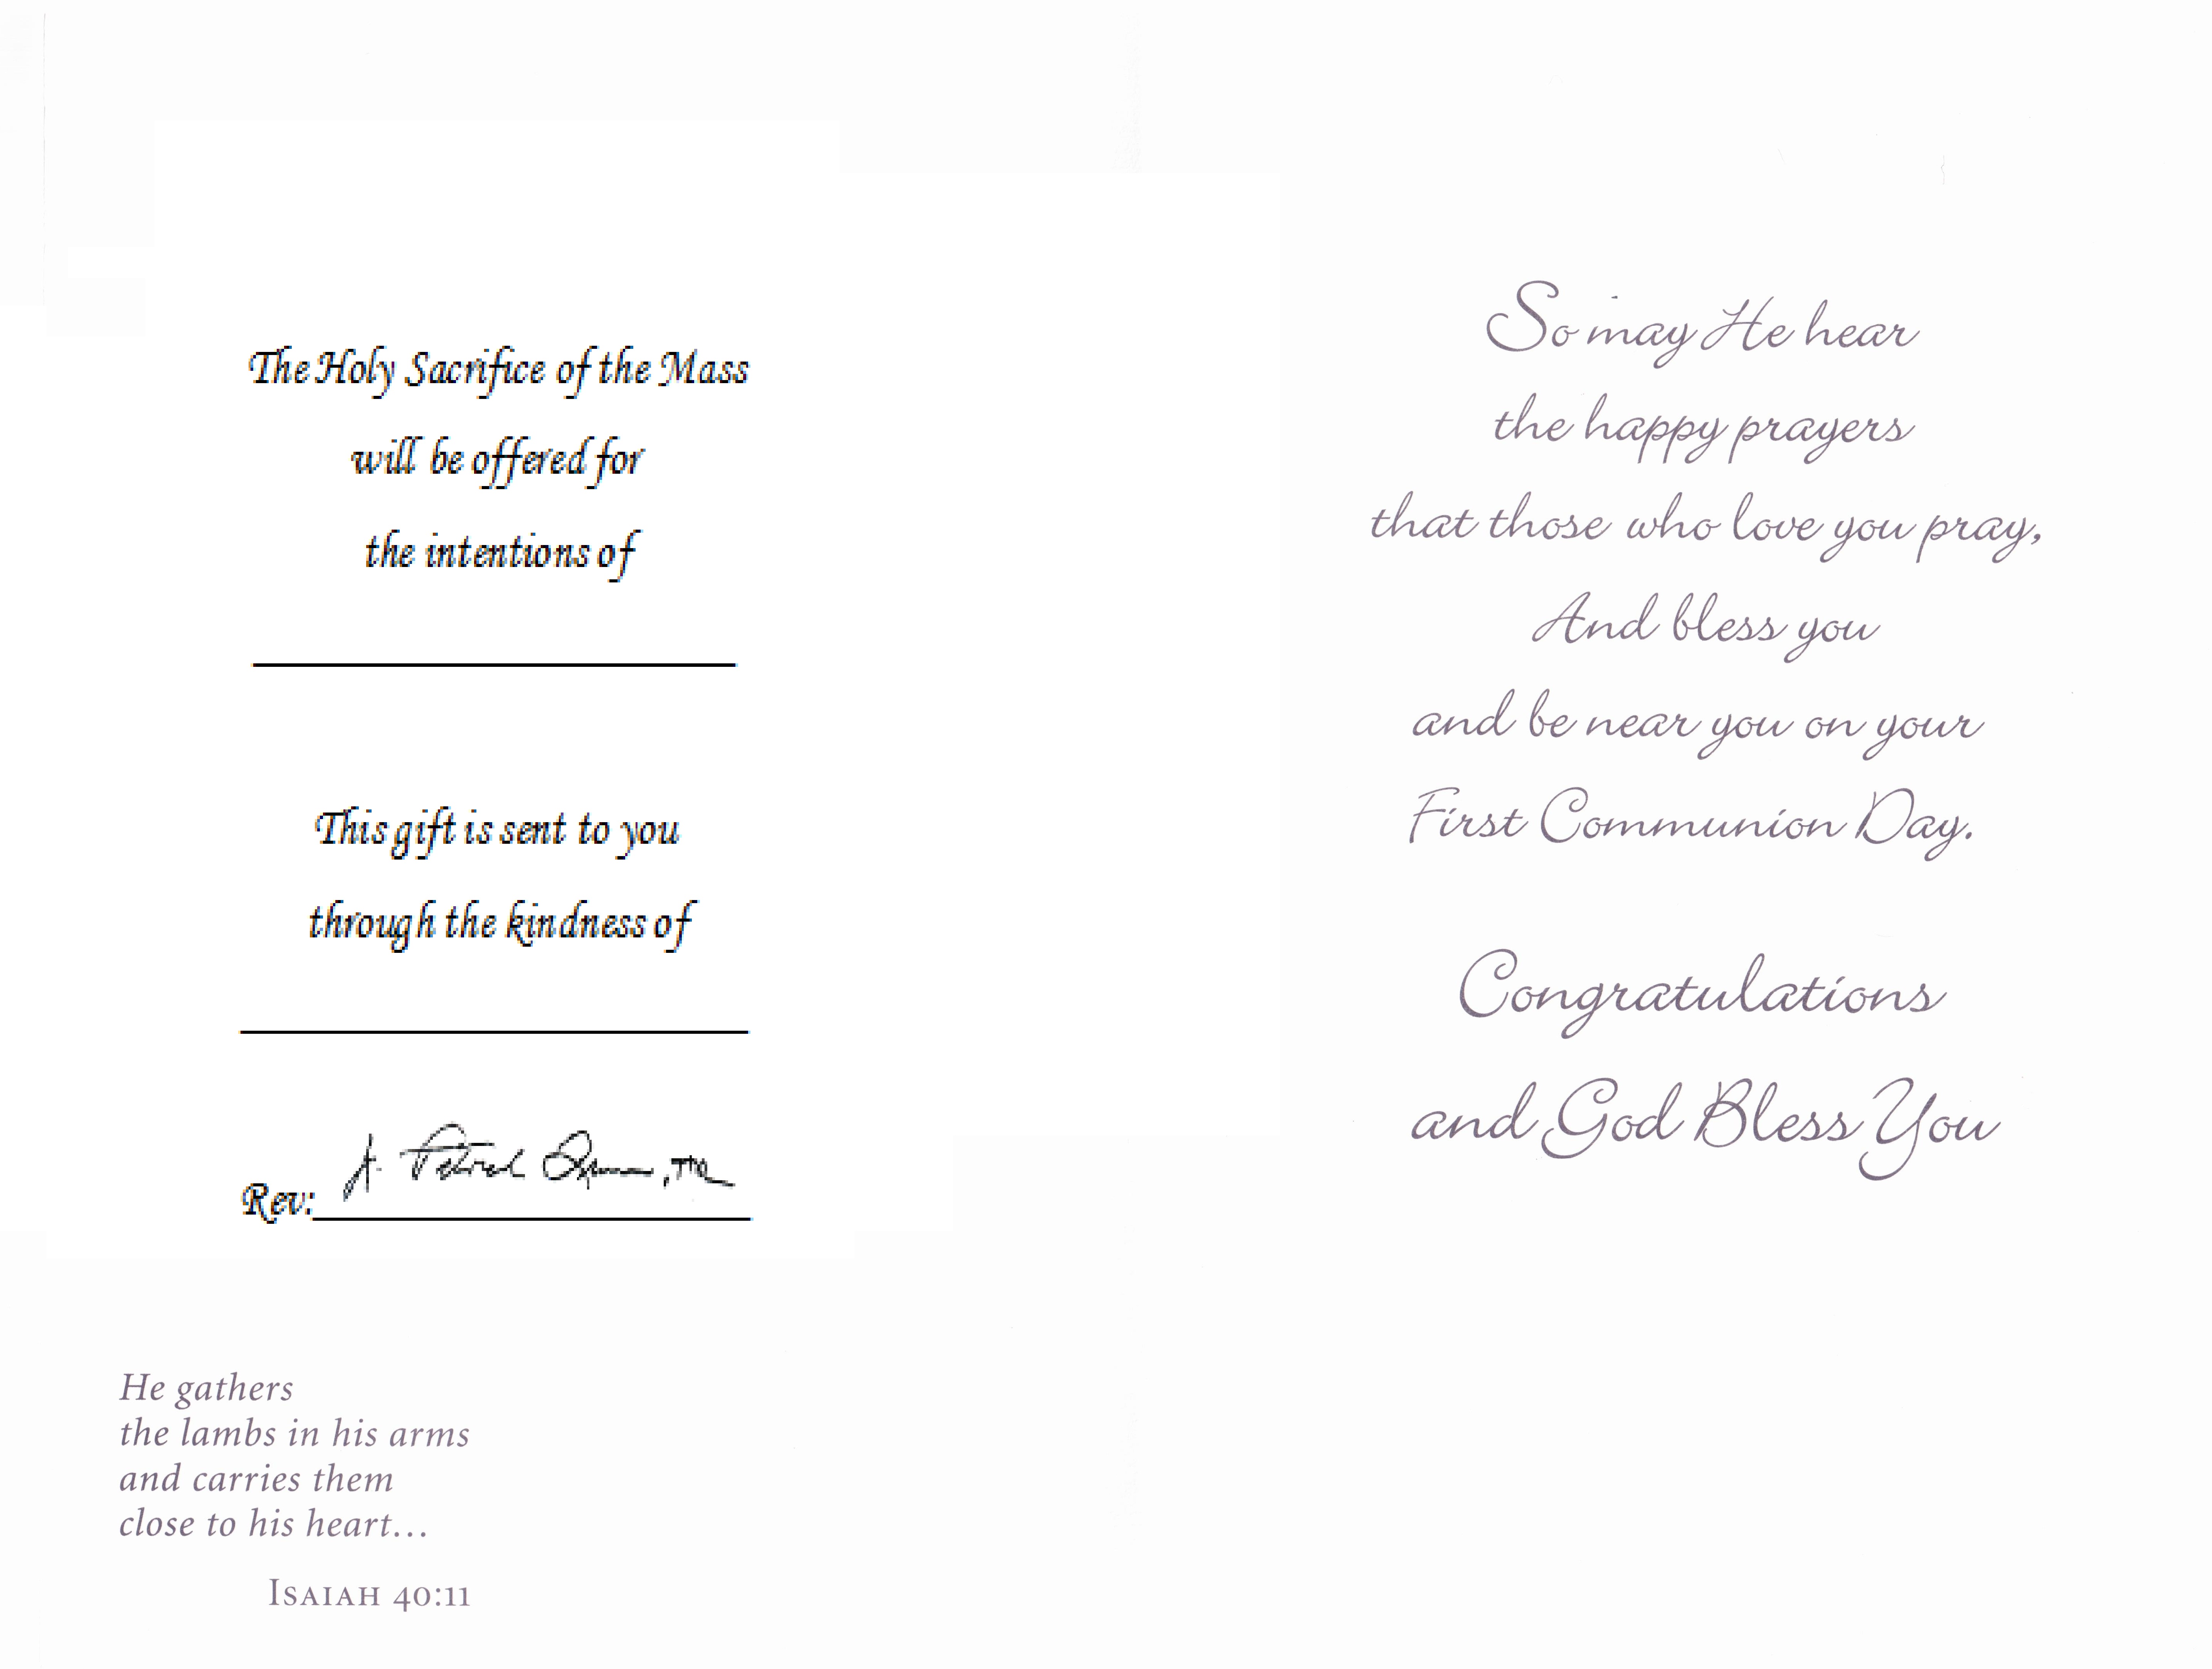 The Holy Sacrifice of the Mass
will be offered for
the intentions of
This gift is sent to you
through the kindness of
Rev:
He gathers
the lambs in his arms
and carries them
close to his heart…
ISAIAH 40:11
So may He hear
the happy prayers
that those who love you pray,
And bless you
and be near you on your
First Communion Day.
Congratulations
and God Bless You